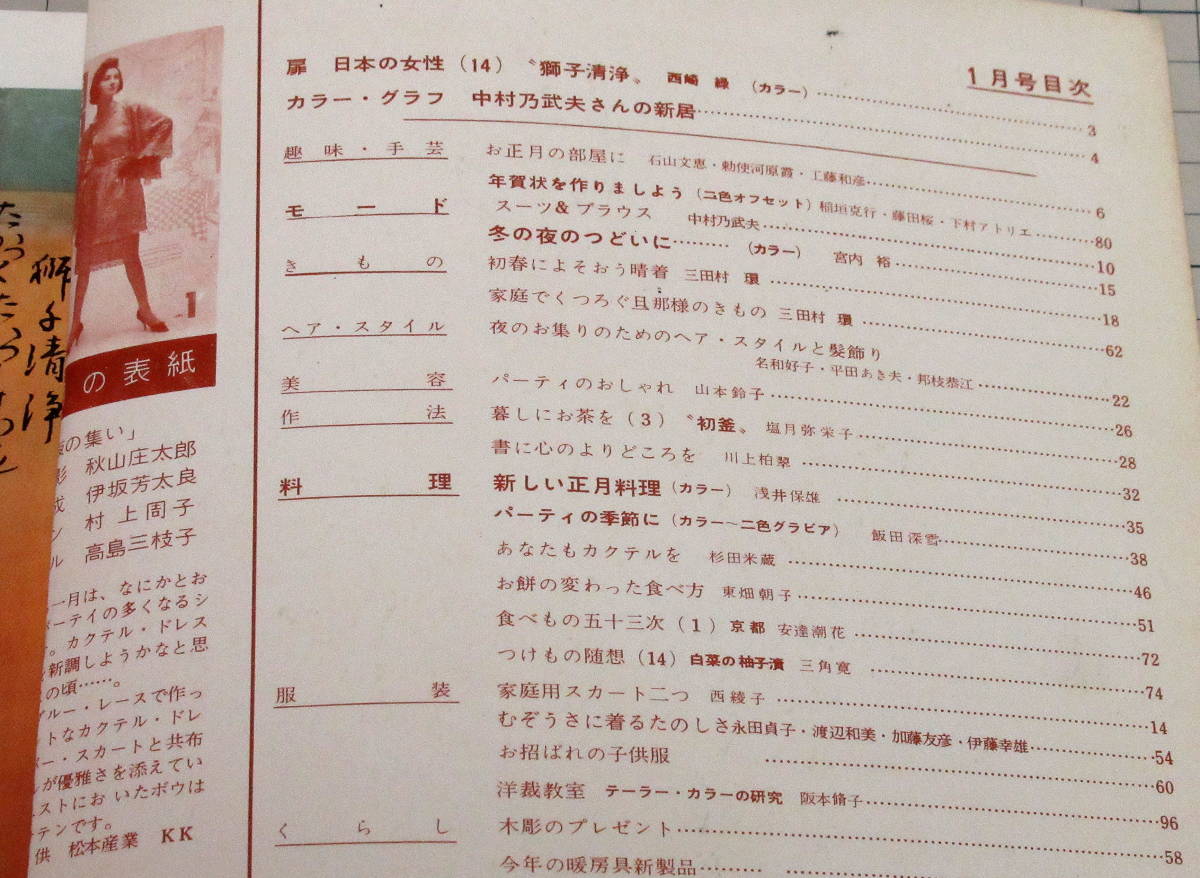 1月号目次
扉 日本の女性(14) 〝獅子清浄〟 西崎 緑 (カラー)……3
カラー・グラフ 中村乃武夫さんの新居……4
趣味・手芸 お正月の部屋に 石山文恵・勅使河原霞・工藤和彦……6
年賀状を作りましよう(二色オフセット)稲垣克行・藤田桜・下村アトリエ……80
モード スーツ&ブラウス 中村乃武夫……10
冬の夜のつどいに……(カラー) 宮内 裕……15
きもの 初春によそおう晴着 三田村 環……18
家庭でくつろぐ旦那様のきもの 三田村 環……62
ヘア・スタイル 夜のお集りのためのヘア・スタイルと髪飾り
名和好子・平田あき夫・邦枝恭江……22
美容 パーティのおしゃれ 山本鈴子……26
作法 暮しにお茶を(3) 〝初釜〟 塩月弥栄子……28
書に心のよりどころを 川上柏翠……32
料理 新しい正月料理(カラー) 浅井保雄……35
パーティの季節に(カラー〜二色グラビア) 飯田深雪……38
あなたもカクテルを 杉田米蔵……46
お餅の変わった食べ方 東畑朝子……51
食べもの五十三次(1)京都 安達潮花……72
つけもの随想(14)白菜の柚子漬 三角寛……74
服装 家庭用スカート二つ 西綾子……14
むぞうさに着るたのしさ 永田貞子・渡辺和美・加藤友彦・伊藤幸雄……54
お招ばれの子供服……60
洋裁教室 テーラー・カラーの研究 阪本脩子……96
くらし 木彫のプレゼント……58
今年の暖房具新製品……
1
の表紙
の集い」
影 秋山庄太郎
成 伊坂芳太良
ン 村上周子
ル 高島三枝子
一月は、なにかとお
パーテイの多くなるシ
。カクテル・ドレス
新調しようかなと思
の頃……。
ブルー・レースで作っ
トなカクテル・ドレ
ー・スカートと共布
が優雅さを添えてい
エストにおいたボウは
テンです。
供 松本産業 KK
獅子清浄